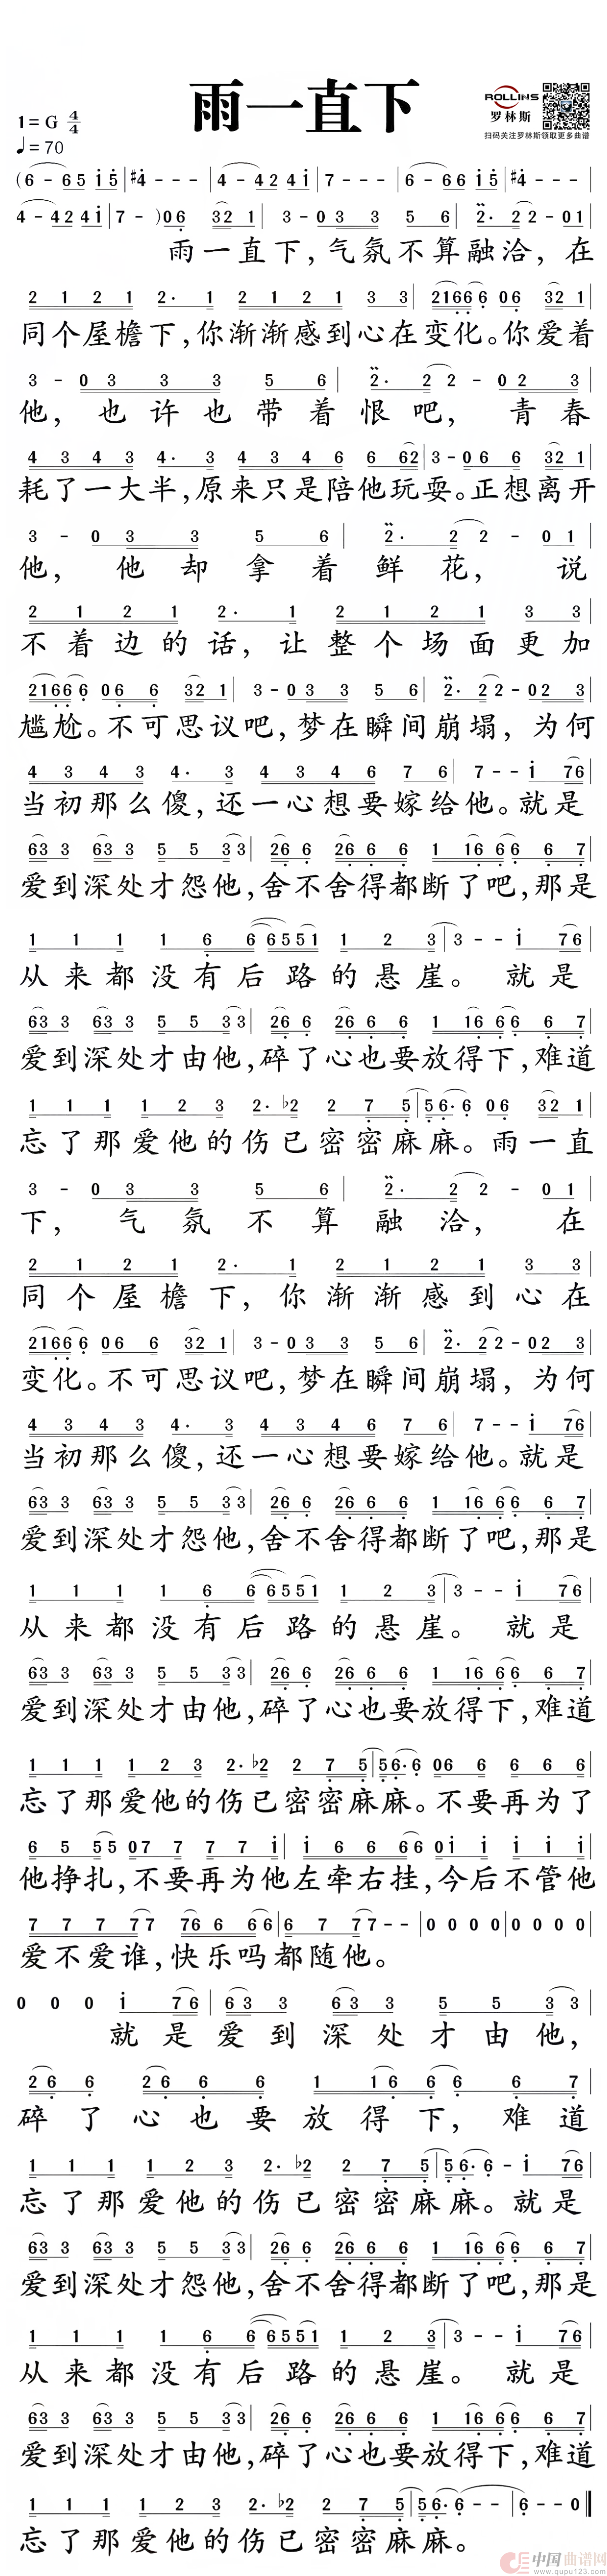 雨一直下
ROLLINS
罗林斯
扫码关注罗林斯领取更多曲谱
1=G 4/4
♩=70
(6 - 65 i5 | #4 - - - | 4 - 424i | 7 - - - | 6 - 66 i5 | #4 - - - |
4 - 424i | 7 - ) 06 321 | 3 - 03 3 5 6 | 2· 2 2 - 01 |
雨一直下,气氛不算融洽,在
2 1 2 1 2· 1 2 1 2 1 3 3 | 2166 6 06 321 |
同个屋檐下,你渐渐感到心在变化。你爱着
3 - 0 3 3 3 5 6 | 2· 2 2 - 0 2 3 |
他,也许也带着恨吧,青春
4 3 4 3 4· 3 4 3 4 6 6 62 | 3 - 06 6 321 |
耗了一大半,原来只是陪他玩耍。正想离开
3 - 0 3 3 5 6 | 2· 2 2 - 0 1 |
他,他却拿着鲜花,说
2 1 2 1 2· 1 2 1 2 1 3 3 |
不着边的话,让整个场面更加
2166 6 06 6 321 | 3 - 03 3 5 6 | 2· 2 2 - 02 3 |
尴尬。不可思议吧,梦在瞬间崩塌,为何
4 3 4 3 4· 3 4 3 4 6 7 6 | 7 - - i 76 |
当初那么傻,还一心想要嫁给他。就是
63 3 63 3 5 5 3 3 | 26 6 26 6 6 1 16 6 6 6 7 |
爱到深处才怨他,舍不舍得都断了吧,那是
1 1 1 1 6 6 6551 1 2 3 | 3 - - i 76 |
从来都没有后路的悬崖。就是
63 3 63 3 5 5 3 3 | 26 6 26 6 6 1 16 6 6 6 7 |
爱到深处才由他,碎了心也要放得下,难道
1 1 1 1 2 3 2· b2 2 7 5 | 5 6· 6 06 321 |
忘了那爱他的伤已密密麻麻。雨一直
3 - 0 3 3 5 6 | 2· 2 2 - 0 1 |
下,气氛不算融洽,在
2 1 2 1 2· 1 2 1 2 1 3 3 |
同个屋檐下,你渐渐感到心在
2166 6 06 6 321 | 3 - 03 3 5 6 | 2· 2 2 - 02 3 |
变化。不可思议吧,梦在瞬间崩塌,为何
4 3 4 3 4· 3 4 3 4 6 7 6 | 7 - - i 76 |
当初那么傻,还一心想要嫁给他。就是
63 3 63 3 5 5 3 3 | 26 6 26 6 6 1 16 6 6 6 7 |
爱到深处才怨他,舍不舍得都断了吧,那是
1 1 1 1 6 6 6551 1 2 3 | 3 - - i 76 |
从来都没有后路的悬崖。就是
63 3 63 3 5 5 3 3 | 26 6 26 6 6 1 16 6 6 6 7 |
爱到深处才由他,碎了心也要放得下,难道
1 1 1 1 2 3 2· b2 2 7 5 | 5 56· 6 06 6 6 6 6 |
忘了那爱他的伤已密密麻麻。不要再为了
6 5 5 5 07 7 7 7 i | i 6 6 6 6 0i i i i i |
他挣扎,不要再为他左牵右挂,今后不管他
7 7 7 7 7 76 6 6 6 | 6 7 7 7 - - | 0 0 0 0 | 0 0 0 0 |
爱不爱谁,快乐吗都随他。
0 0 0 i 76 | 63 3 63 3 5 5 3 3 |
就是爱到深处才由他,
26 6 26 6 6 1 16 6 6 6 7 |
碎了心也要放得下,难道
1 1 1 1 2 3 2· b2 2 7 5 | 5 6· 6 - i 76 |
忘了那爱他的伤已密密麻麻。就是
63 3 63 3 5 5 3 3 | 26 6 26 6 6 1 16 6 6 6 7 |
爱到深处才怨他,舍不舍得都断了吧,那是
1 1 1 1 6 6 6551 1 2 3 | 3 - - i 76 |
从来都没有后路的悬崖。就是
63 3 63 3 5 5 3 3 | 26 6 26 6 6 1 16 6 6 6 7 |
爱到深处才由他,碎了心也要放得下,难道
1 1 1 1 2 3 2· b2 2 7 5 | 5 6· 6 - - | 6 - - 0 ‖
忘了那爱他的伤已密密麻麻。
中国曲谱网
www.qupu123.com